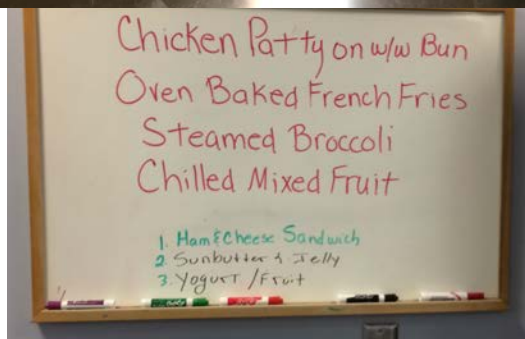 Chicken Patty on w/w Bun
Oven Baked French Fries
Steamed Broccoli
Chilled Mixed Fruit
1. Ham & Cheese Sandwich
2. Sunbutter & Jelly
3. Yogurt / Fruit